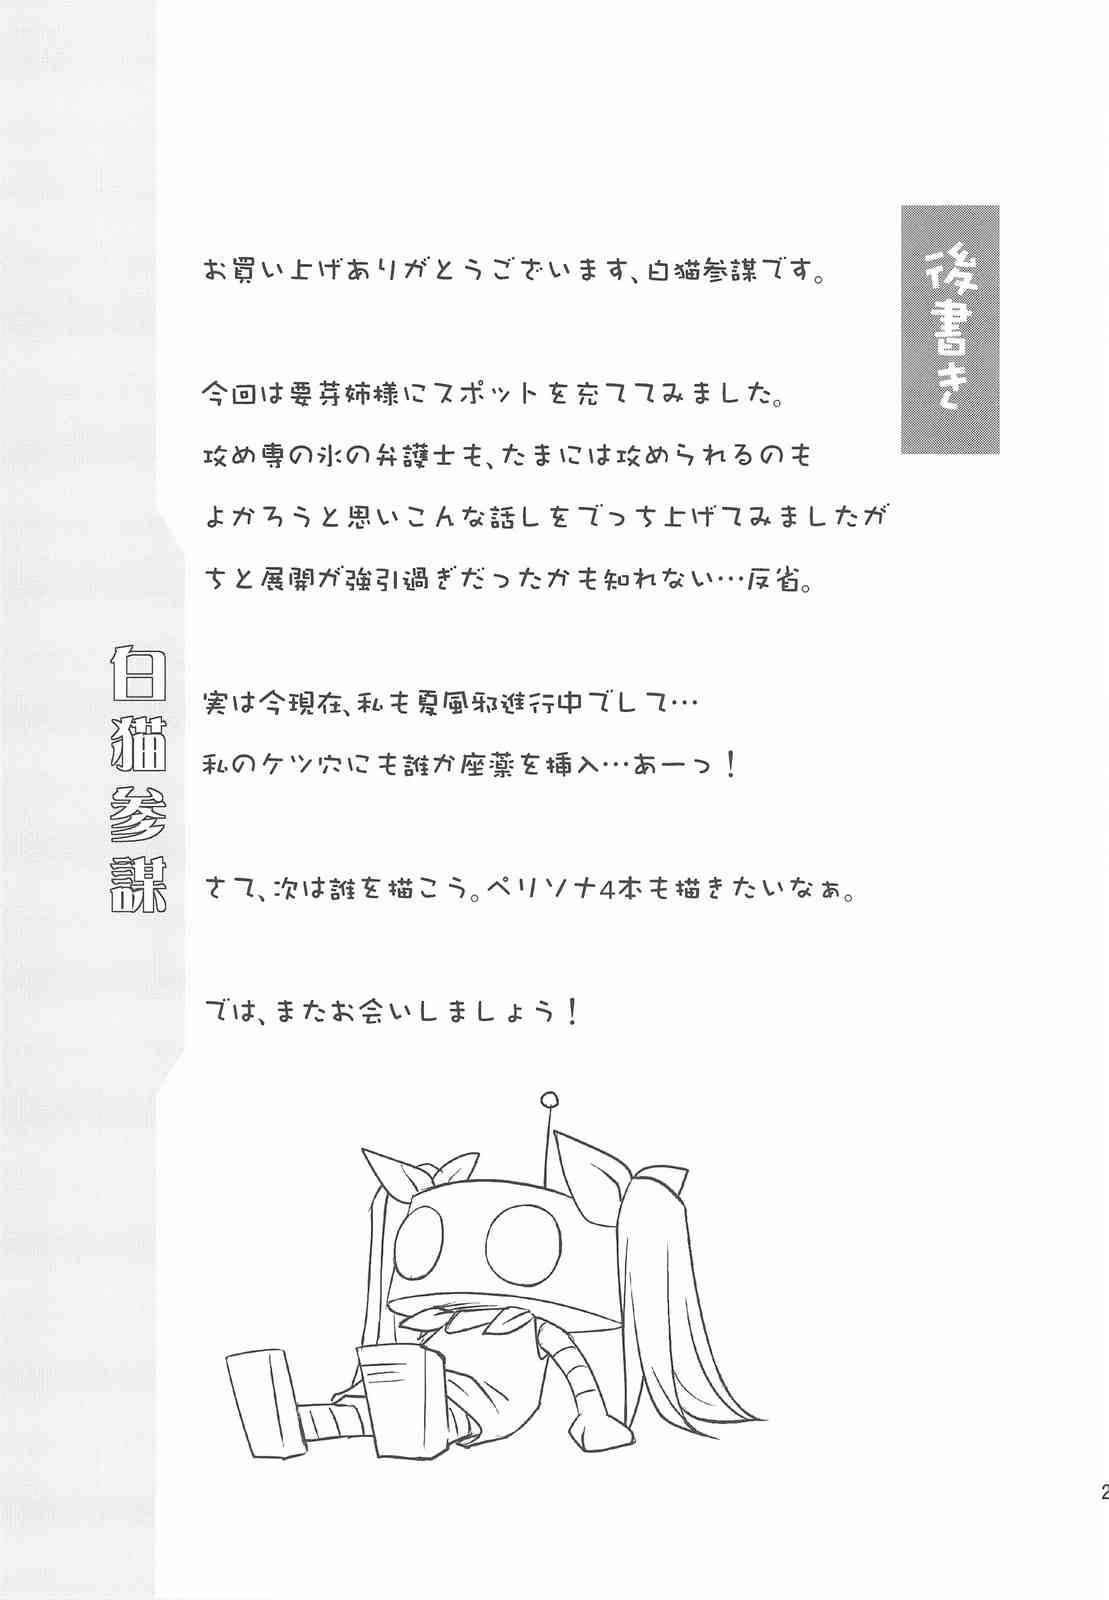 後書き
お買い上げありがとうございます、白猫参謀です。
今回は要芽姉様にスポットを充ててみました。
攻め専の氷の弁護士も、たまには攻められるのも
よかろうと思いこんな話しをでっち上げてみましたが
ちと展開が強引過ぎだったかも知れない…反省。
実は今現在、私も夏風邪進行中でして…
私のケツ穴にも誰か座薬を挿入…あーっ！
さて、次は誰を描こう。ペリソナ4本も描きたいなぁ。
では、またお会いしましょう！
白猫参謀